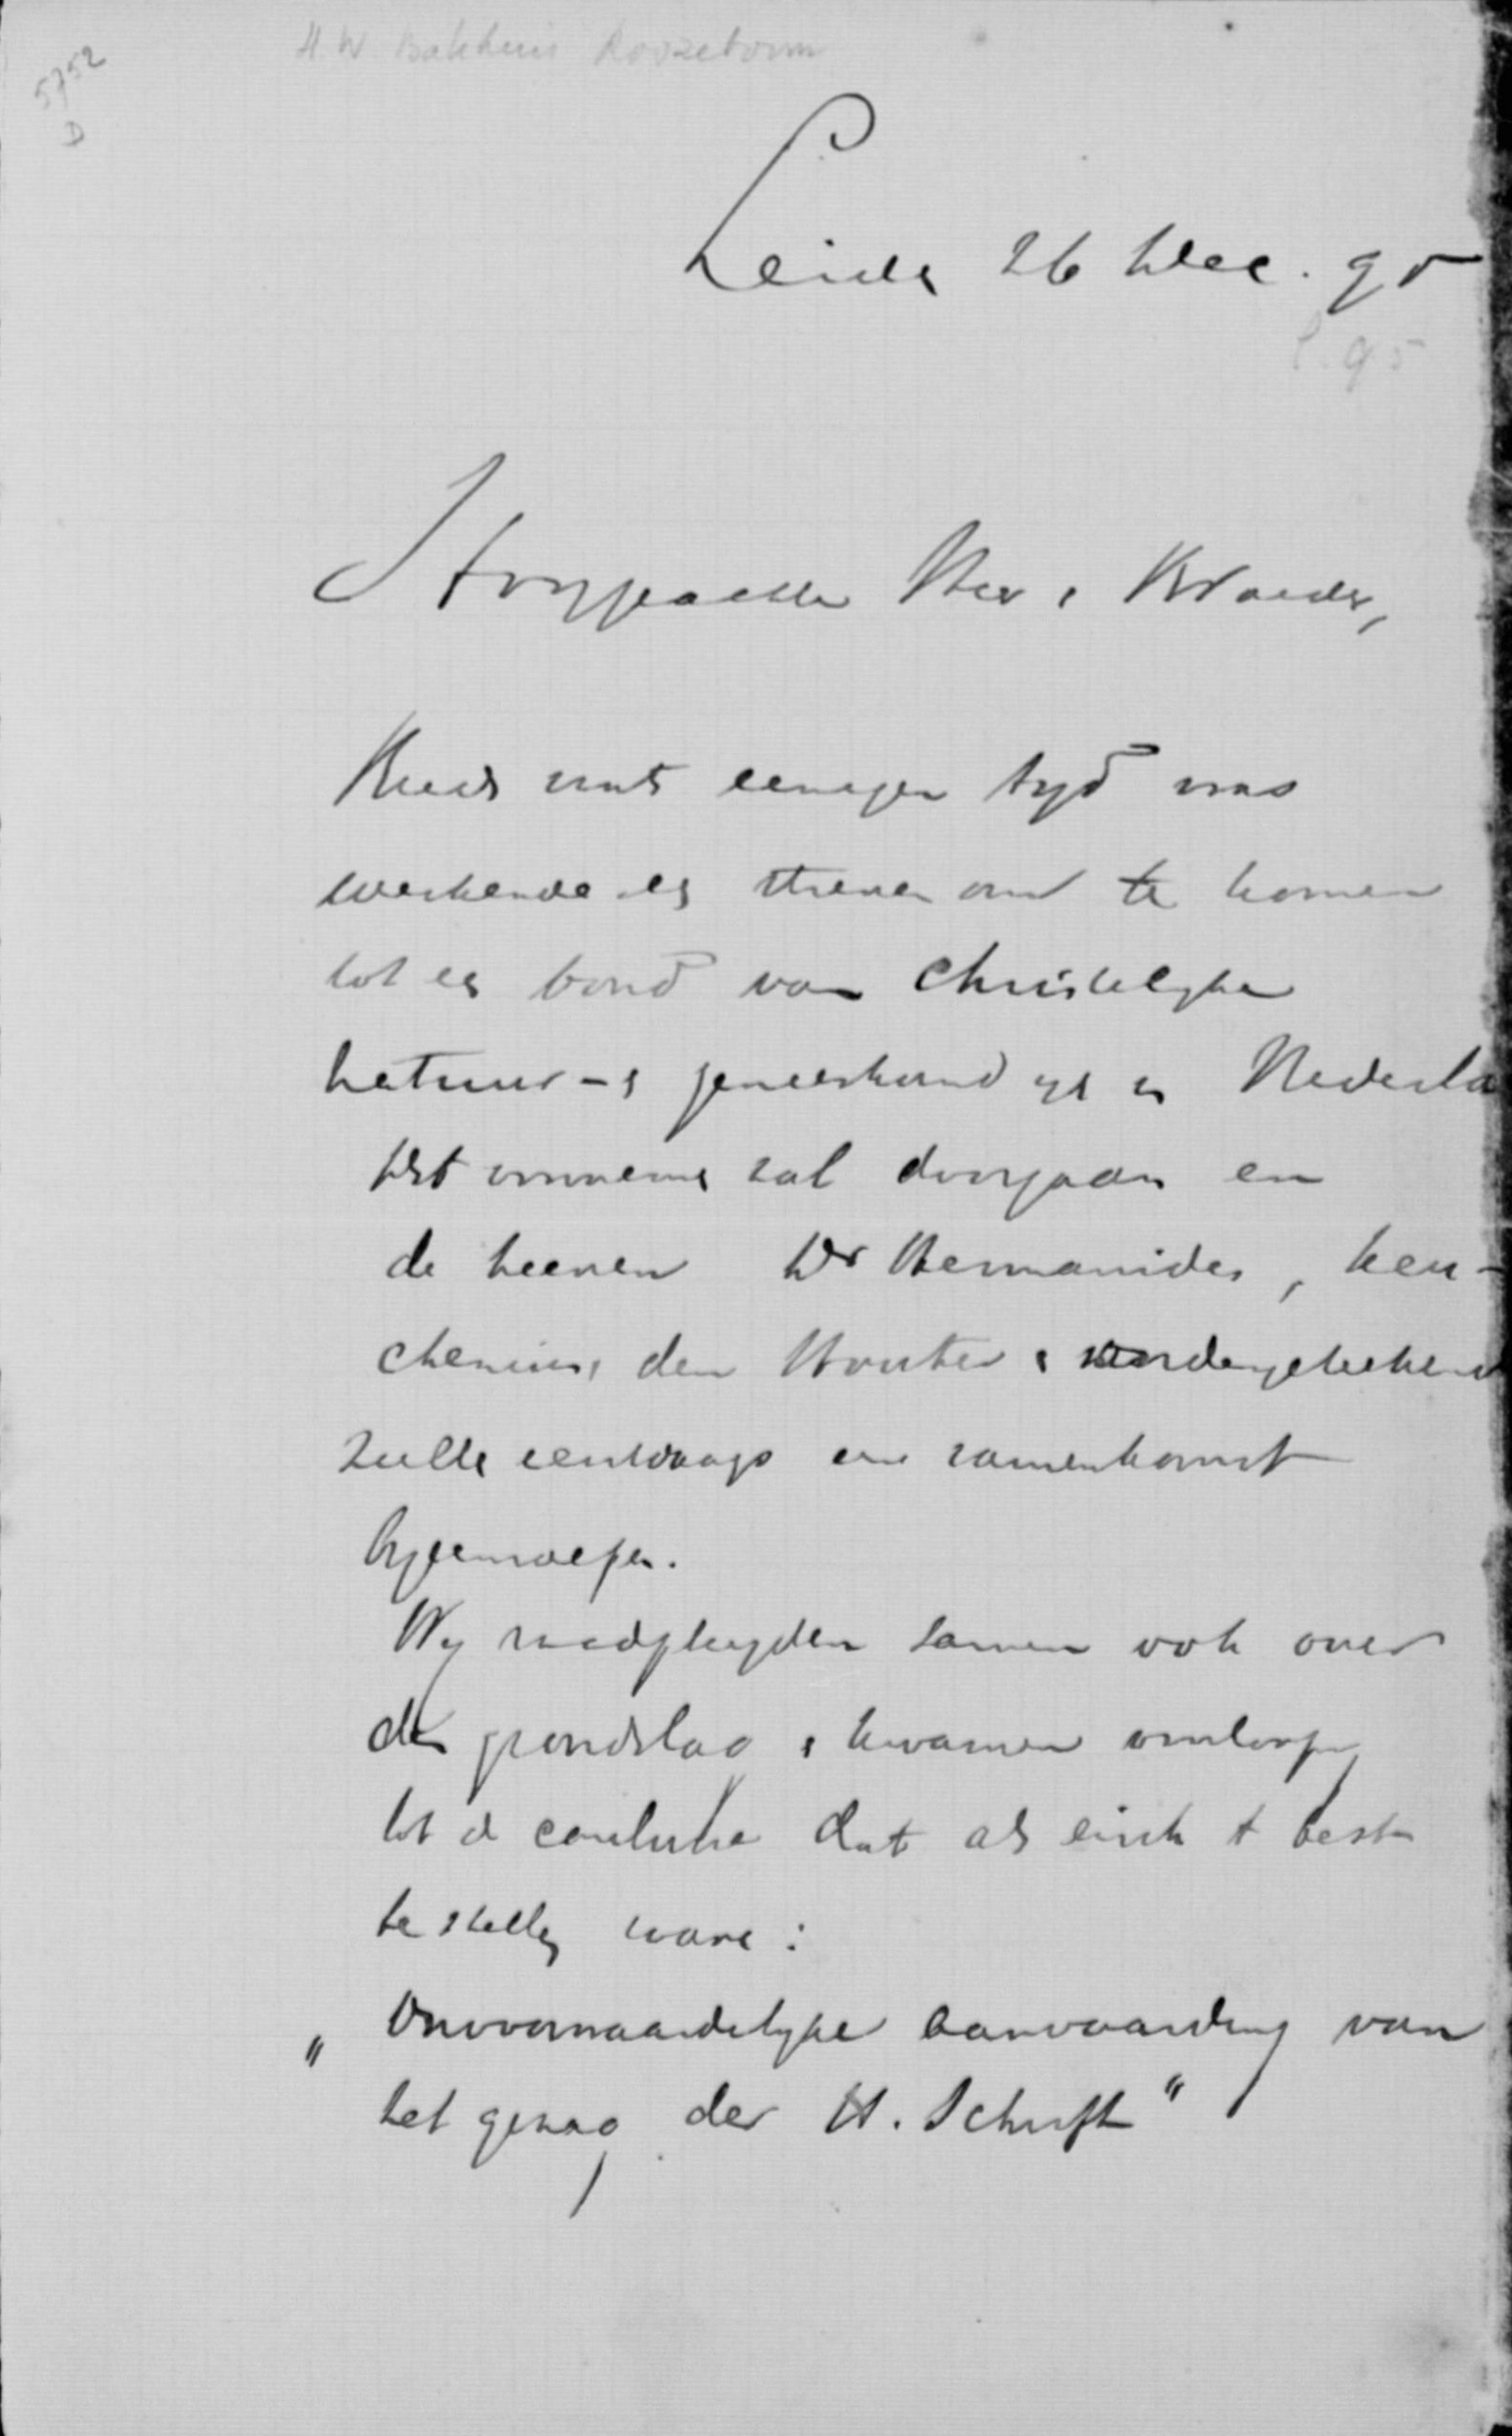 H. W. Bakhuis Roozeboom
5752
D
Leiden 26 Dec. 95
P. 95
Hooggeachte Heer & Broeder,
Reeds sints eenigen tyd was
werkende een streven om te komen
tot een bond van Christelyke
natuur- & geneeskundigen in Nederla
Het voornemen zal doorgaan en
de heeren Dr Hermanides, Keu-
chenius, den Houter & ondergeteekend
zullen eerstdaags een samenkomst
byeenroepen.
Wy raadpleegden samen ook over
den grondslag & kwamen voorloopig
tot de conclusie dat als eisch t best
te stellen ware:
„Onvoorwaardelyke aanvaarding van
het gezag der H. Schrift"